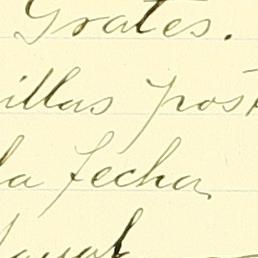 Grates.
illas post
la fecha